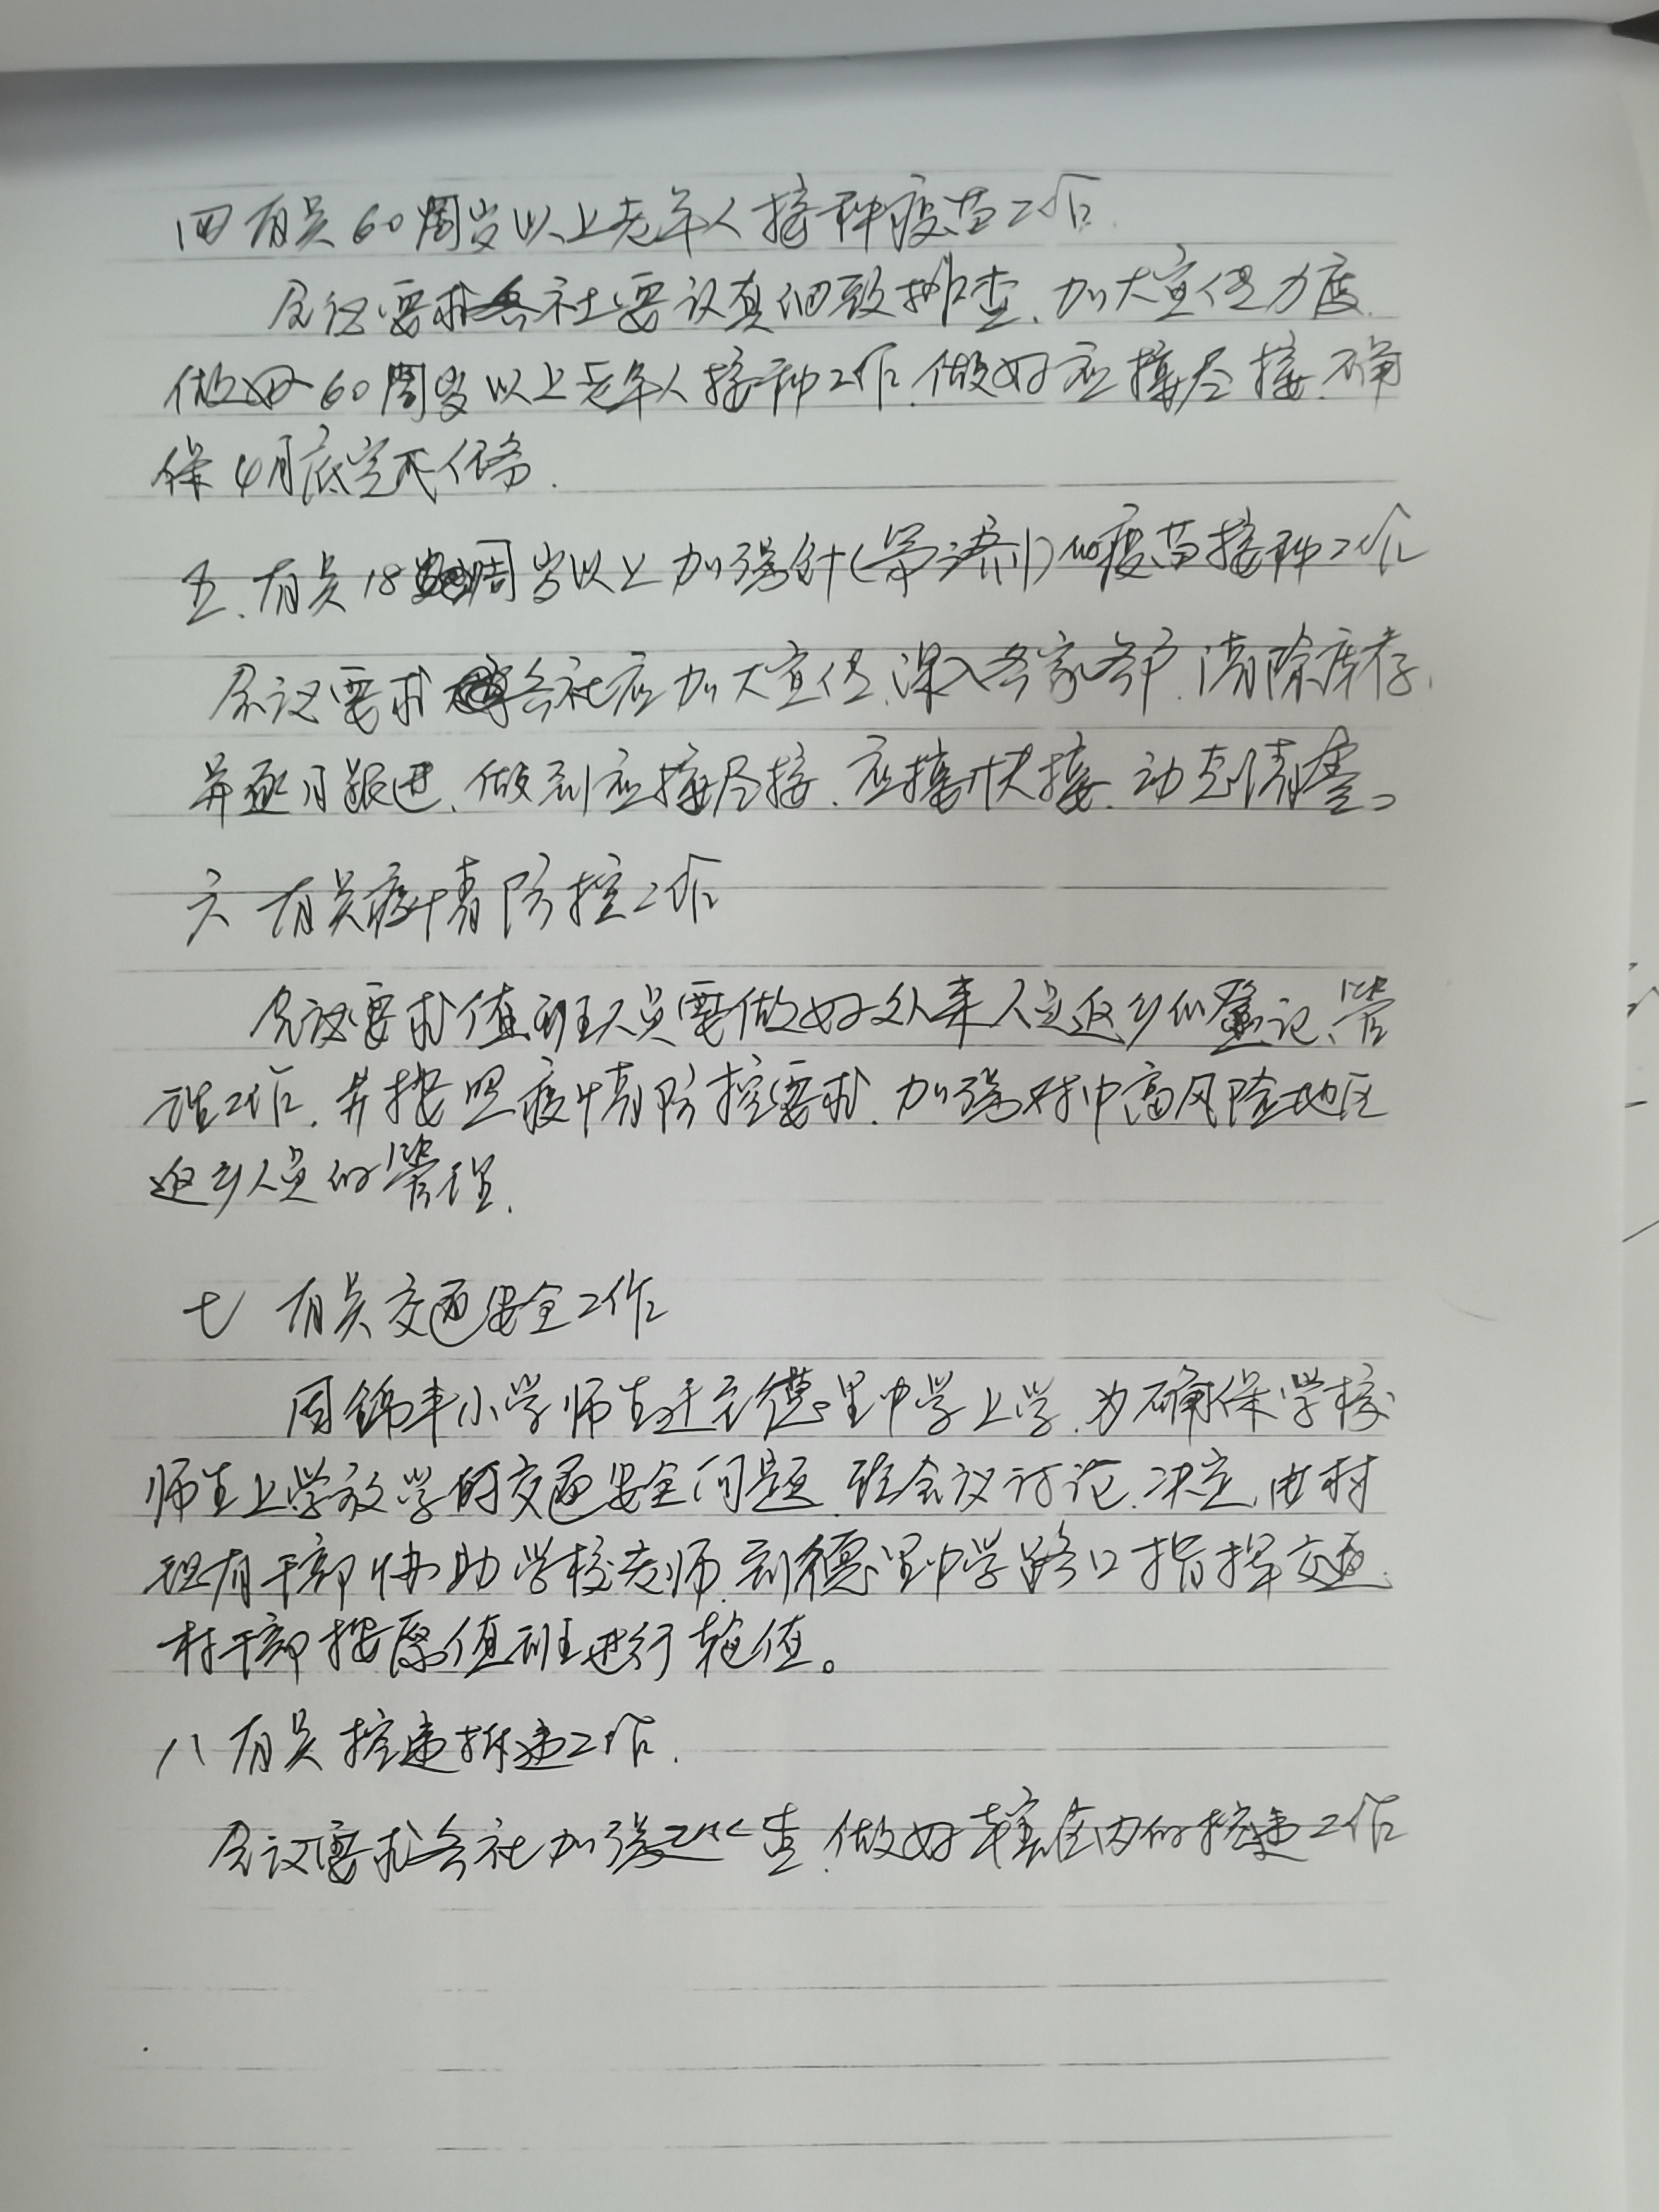 四 有关60周岁以上老年人接种疫苗工作.
会议要求各社要认真细致排查、加大宣传力度.
做好60周岁以上老年人接种工作.做好应接尽接.确
保4月底完成任务.
五、有关18周岁以上加强针(第三剂)的疫苗接种工作
会议要求各社应加大宣传、深入各家各户、清除库存,
并逐月跟进、做到应接尽接、应接快接、动态清零。
六 有关疫情防控工作
会议要求值班人员要做好外来人员返乡的登记、管
理工作.并按照疫情防控要求.加强对中高风险地区
返乡人员的管理.
七 有关交通安全工作
因锦丰小学师生迁到德里中学上学.为确保学校
师生上学放学的交通安全问题.经会议讨论.决定.由村
现有干部协助学校老师.到德里中学路口指挥交通.
村干部按原值班进行轮值。
八 有关控违拆违工作.
会议要求各社加强巡查.做好辖区内的控违工作